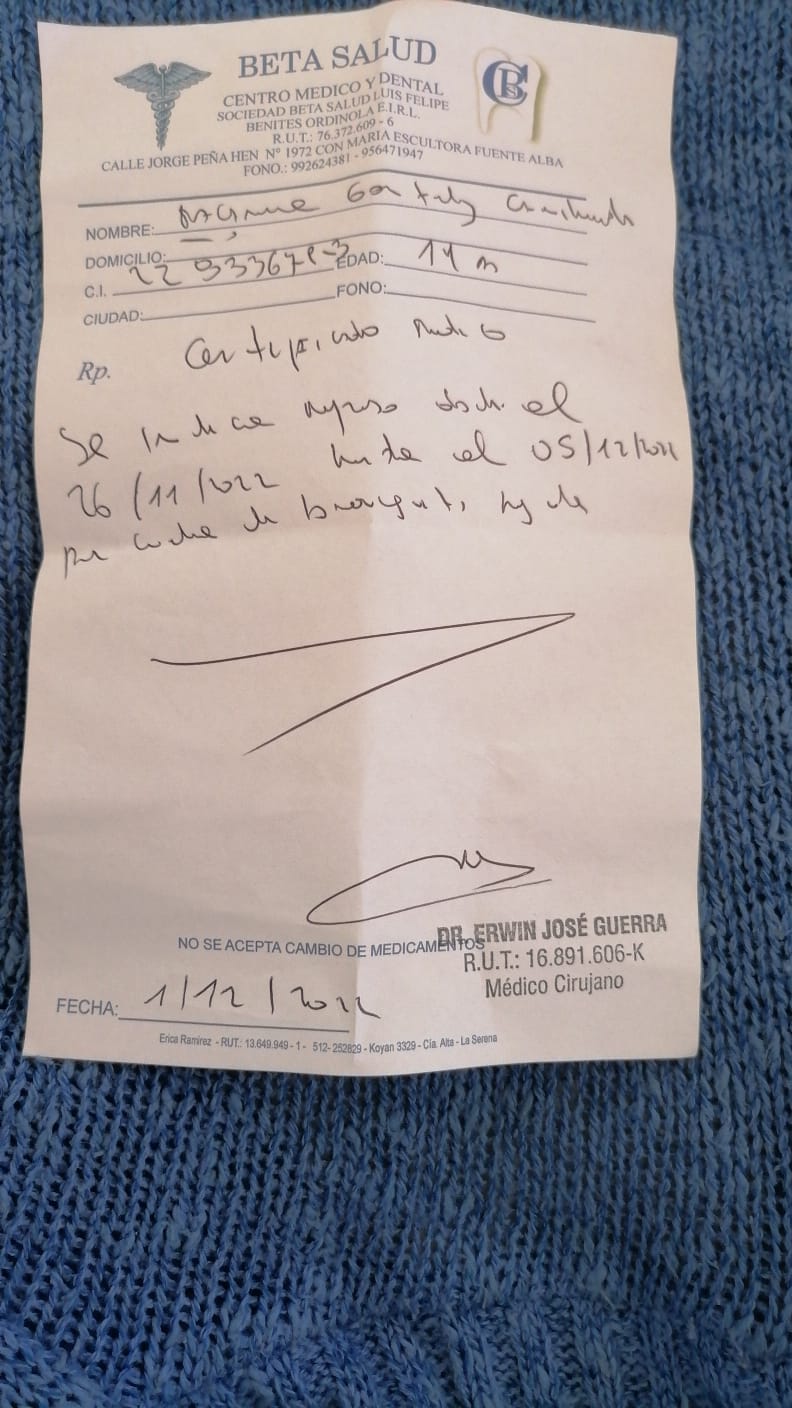 BETA SALUD
CENTRO MEDICO Y DENTAL
SOCIEDAD BETA SALUD LUIS FELIPE
BENITES ORDINOLA E.I.R.L.
R.U.T.: 76.372.609 - 6
CALLE JORGE PEÑA HEN N° 1972 CON MARIA ESCULTORA FUENTE ALBA
FONO.: 992624381 - 956471947
NOMBRE:
DOMICILIO:
C.I. EDAD:
CIUDAD: FONO:
Rp. Certificado Medico
Se indica reposo desde el
26/11/2022 hasta el 05/12/2022
por cuadro de bronquitis aguda
NO SE ACEPTA CAMBIO DE MEDICAMENTOS
DR. ERWIN JOSÉ GUERRA
R.U.T.: 16.891.606-K
Médico Cirujano
FECHA: 1/12/2022
Erica Ramirez - RUT.: 13.649.949 - 1 - 512- 252829 - Koyan 3329 - Cía. Alta - La Serena